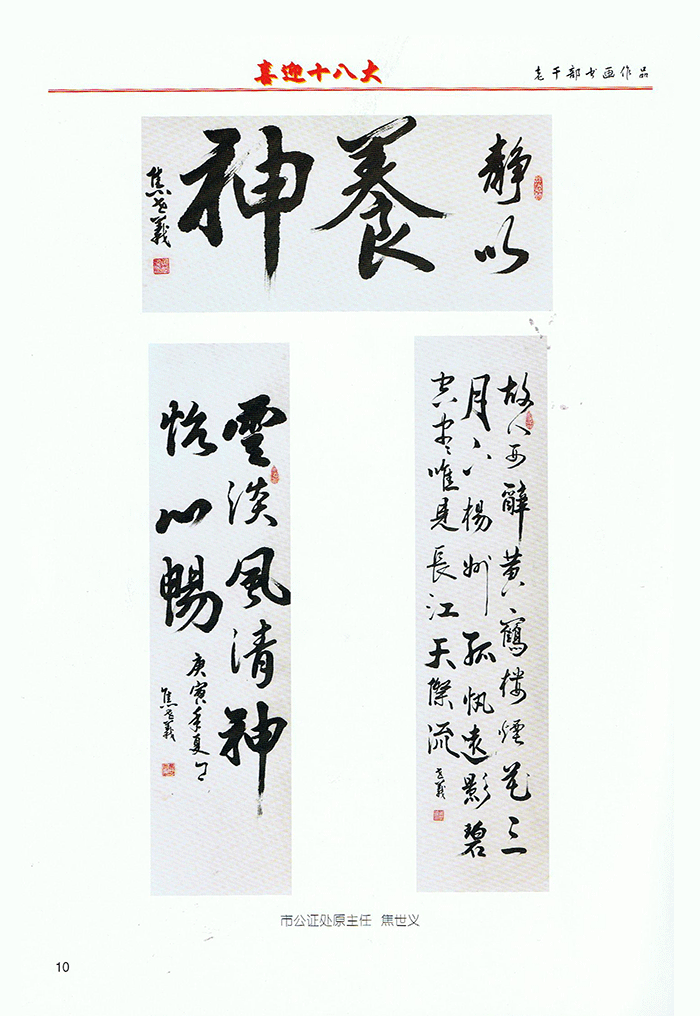 喜迎十八大
老干部书画作品
静以
養
神
焦世義
故人西辭黄鶴樓煙花三
月下楊州孤帆遠影碧
空盡唯見長江天際流
世義
雲淡風清神
怡心暢
庚寅年夏月
焦世義
市公证处原主任 焦世义
10